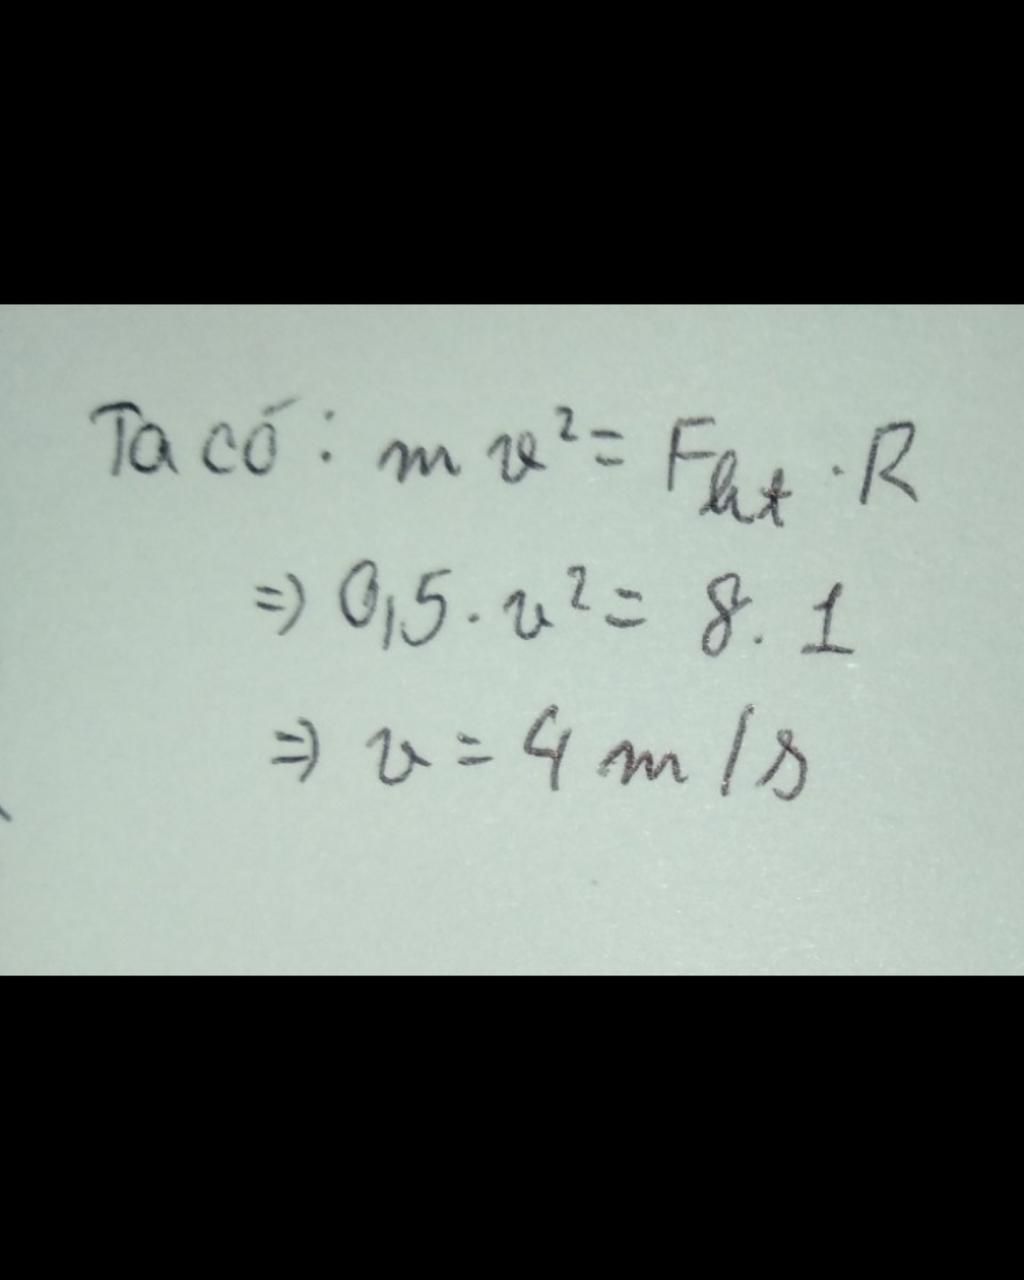 Ta có: mv² = Fht . R
=> 0,5. v² = 8. 1
=> v = 4 m/s